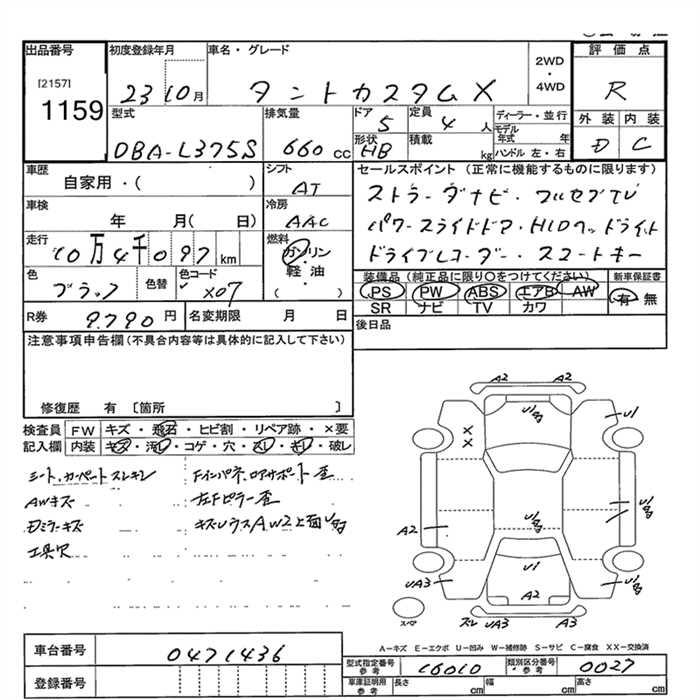 出品番号
[2157]
1159
初度登録年月
23 10月
車名・グレード
タントカスタムX
2WD
・
4WD
評価点
R
外装 内装
D C
型式
DBA-L375S
排気量
660 cc
ドア
5
定員
4 人
形状
HB
積載
kg
ディーラー・並行
モデル
年式 年
ハンドル 左・右
車歴
自家用・( )
シフト
AT
車検
年 月( 日)
冷房
AAC
走行
10万4千097 km
燃料
ガソリン
・
軽油
( )
色
ブラック
色替
色コード
X07
R券 9.790 円
名変期限 月 日
セールスポイント (正常に機能するものに限ります)
ストラーダナビ・フルセグTV
パワースライドドア・HIDヘッドライト
ドライブレコーダー・スマートキー
装備品(純正品に限り○をつけてください)
新車保証書
PS PW ABS エアB AW
有 無
SR ナビ TV カワ
後日品
注意事項申告欄(不具合内容等は具体的に記入して下さい)
修復歴 有 [箇所 ]
検査員 FW キズ・飛石・ヒビ割・リペア跡・×要
記入欄 内装 キズ・汚れ・コゲ・穴・スレ・キレ・破レ
シート.カーペットスレキレ
AWキズ
Dミラーキズ
工具欠
Fインパネ.ロアサポート歪
左Fピラー歪
A2 A2
U1
A2
U1
UA3
A2
スペア
スレ UA3 A3
A-キズ E-エクボ U-凹み W-補修跡 S-サビ C-腐食 XX-交換済
車台番号
0471436
登録番号
型式指定番号
参考
16010
類別区分番号
参考
0027
車庫証明用
参考
長さ cm 幅 cm 高さ cm